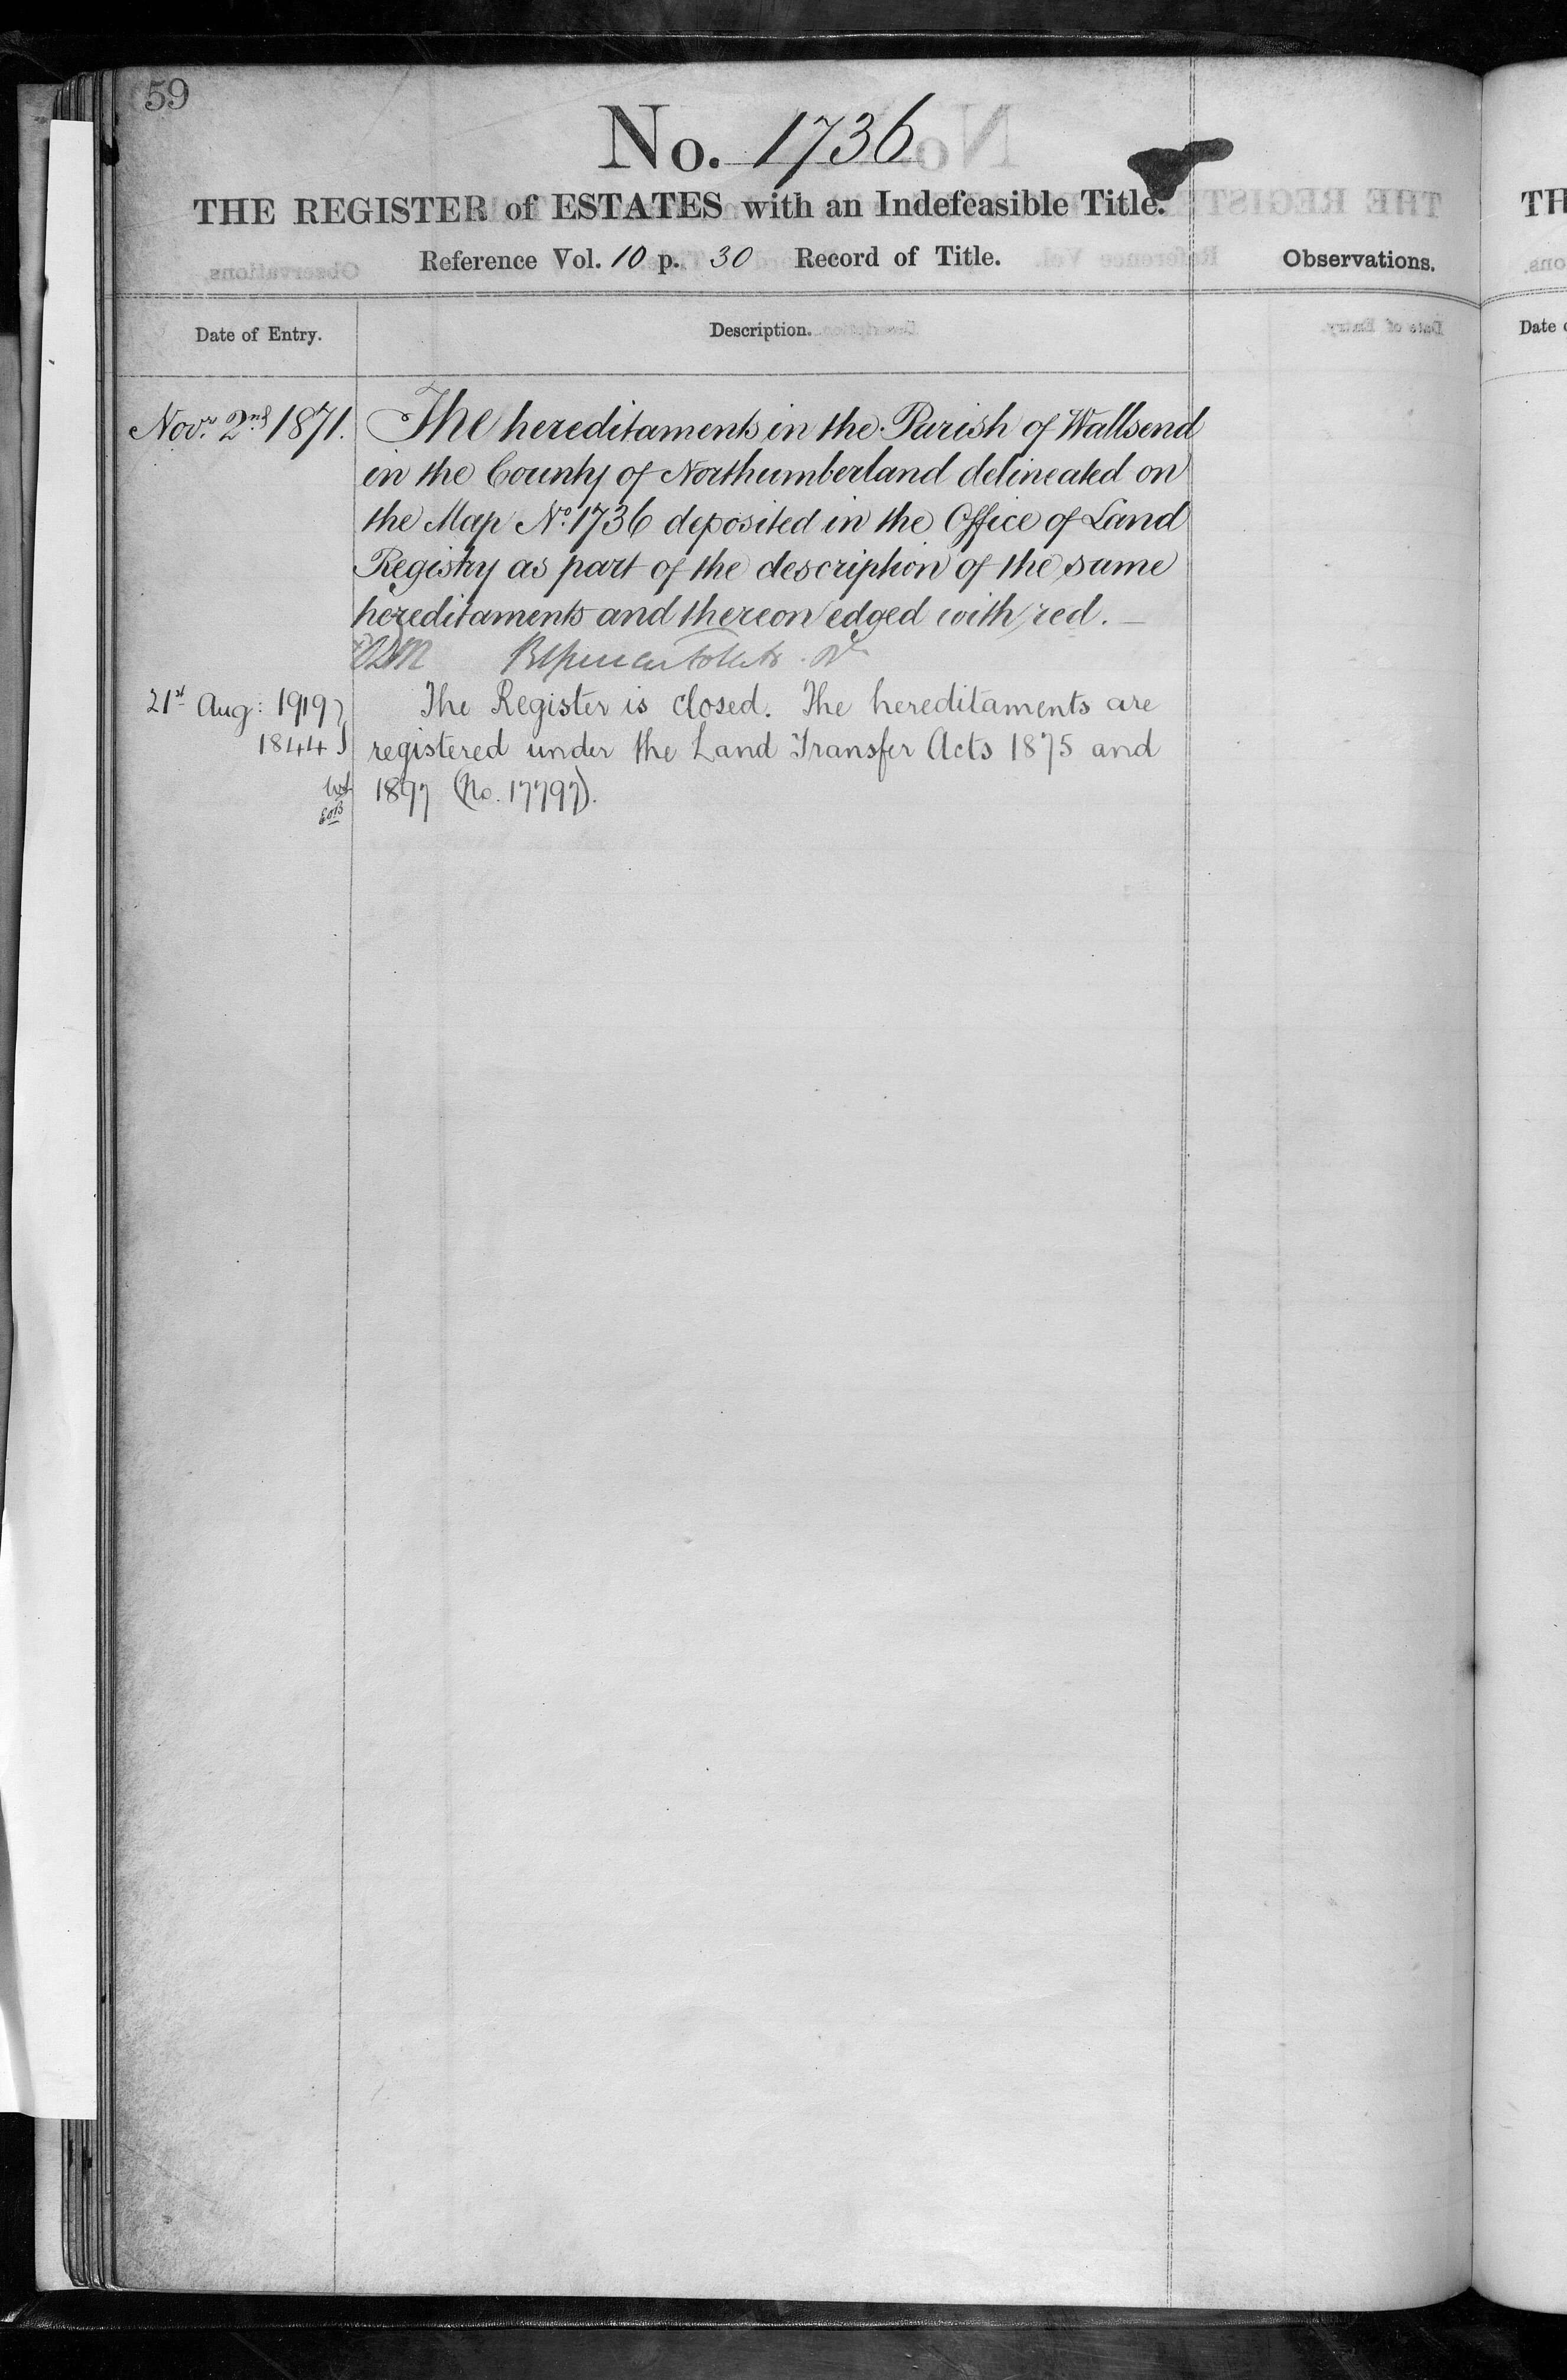 59
No. 1736
THE REGISTER of ESTATES with an Indefeasible Title.
Reference Vol. 10 p. 30 Record of Title.
Observations.
Date of Entry.
Description.
Novr. 2nd 1871.
The hereditaments in the Parish of Wallsend
in the County of Northumberland delineated on
the Map No. 1736 deposited in the Office of Land
Registry as part of the description of the same
hereditaments and thereon edged with red. —
21st Aug: 1919
1844
The Register is closed. The hereditaments are
registered under the Land Transfer Acts 1875 and
1897 (No. 17797).
TH
Date